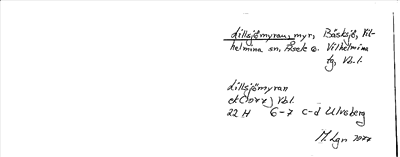 Lillsjömyran, myr, Bäsksjö, Vil-
helmina sn, Åsele o. Vilhelmina
tg, Vb.l.
Lillsjömyran
ek Vb.l.
22 H 6-7 c-d Ulvoberg
M. Lgn